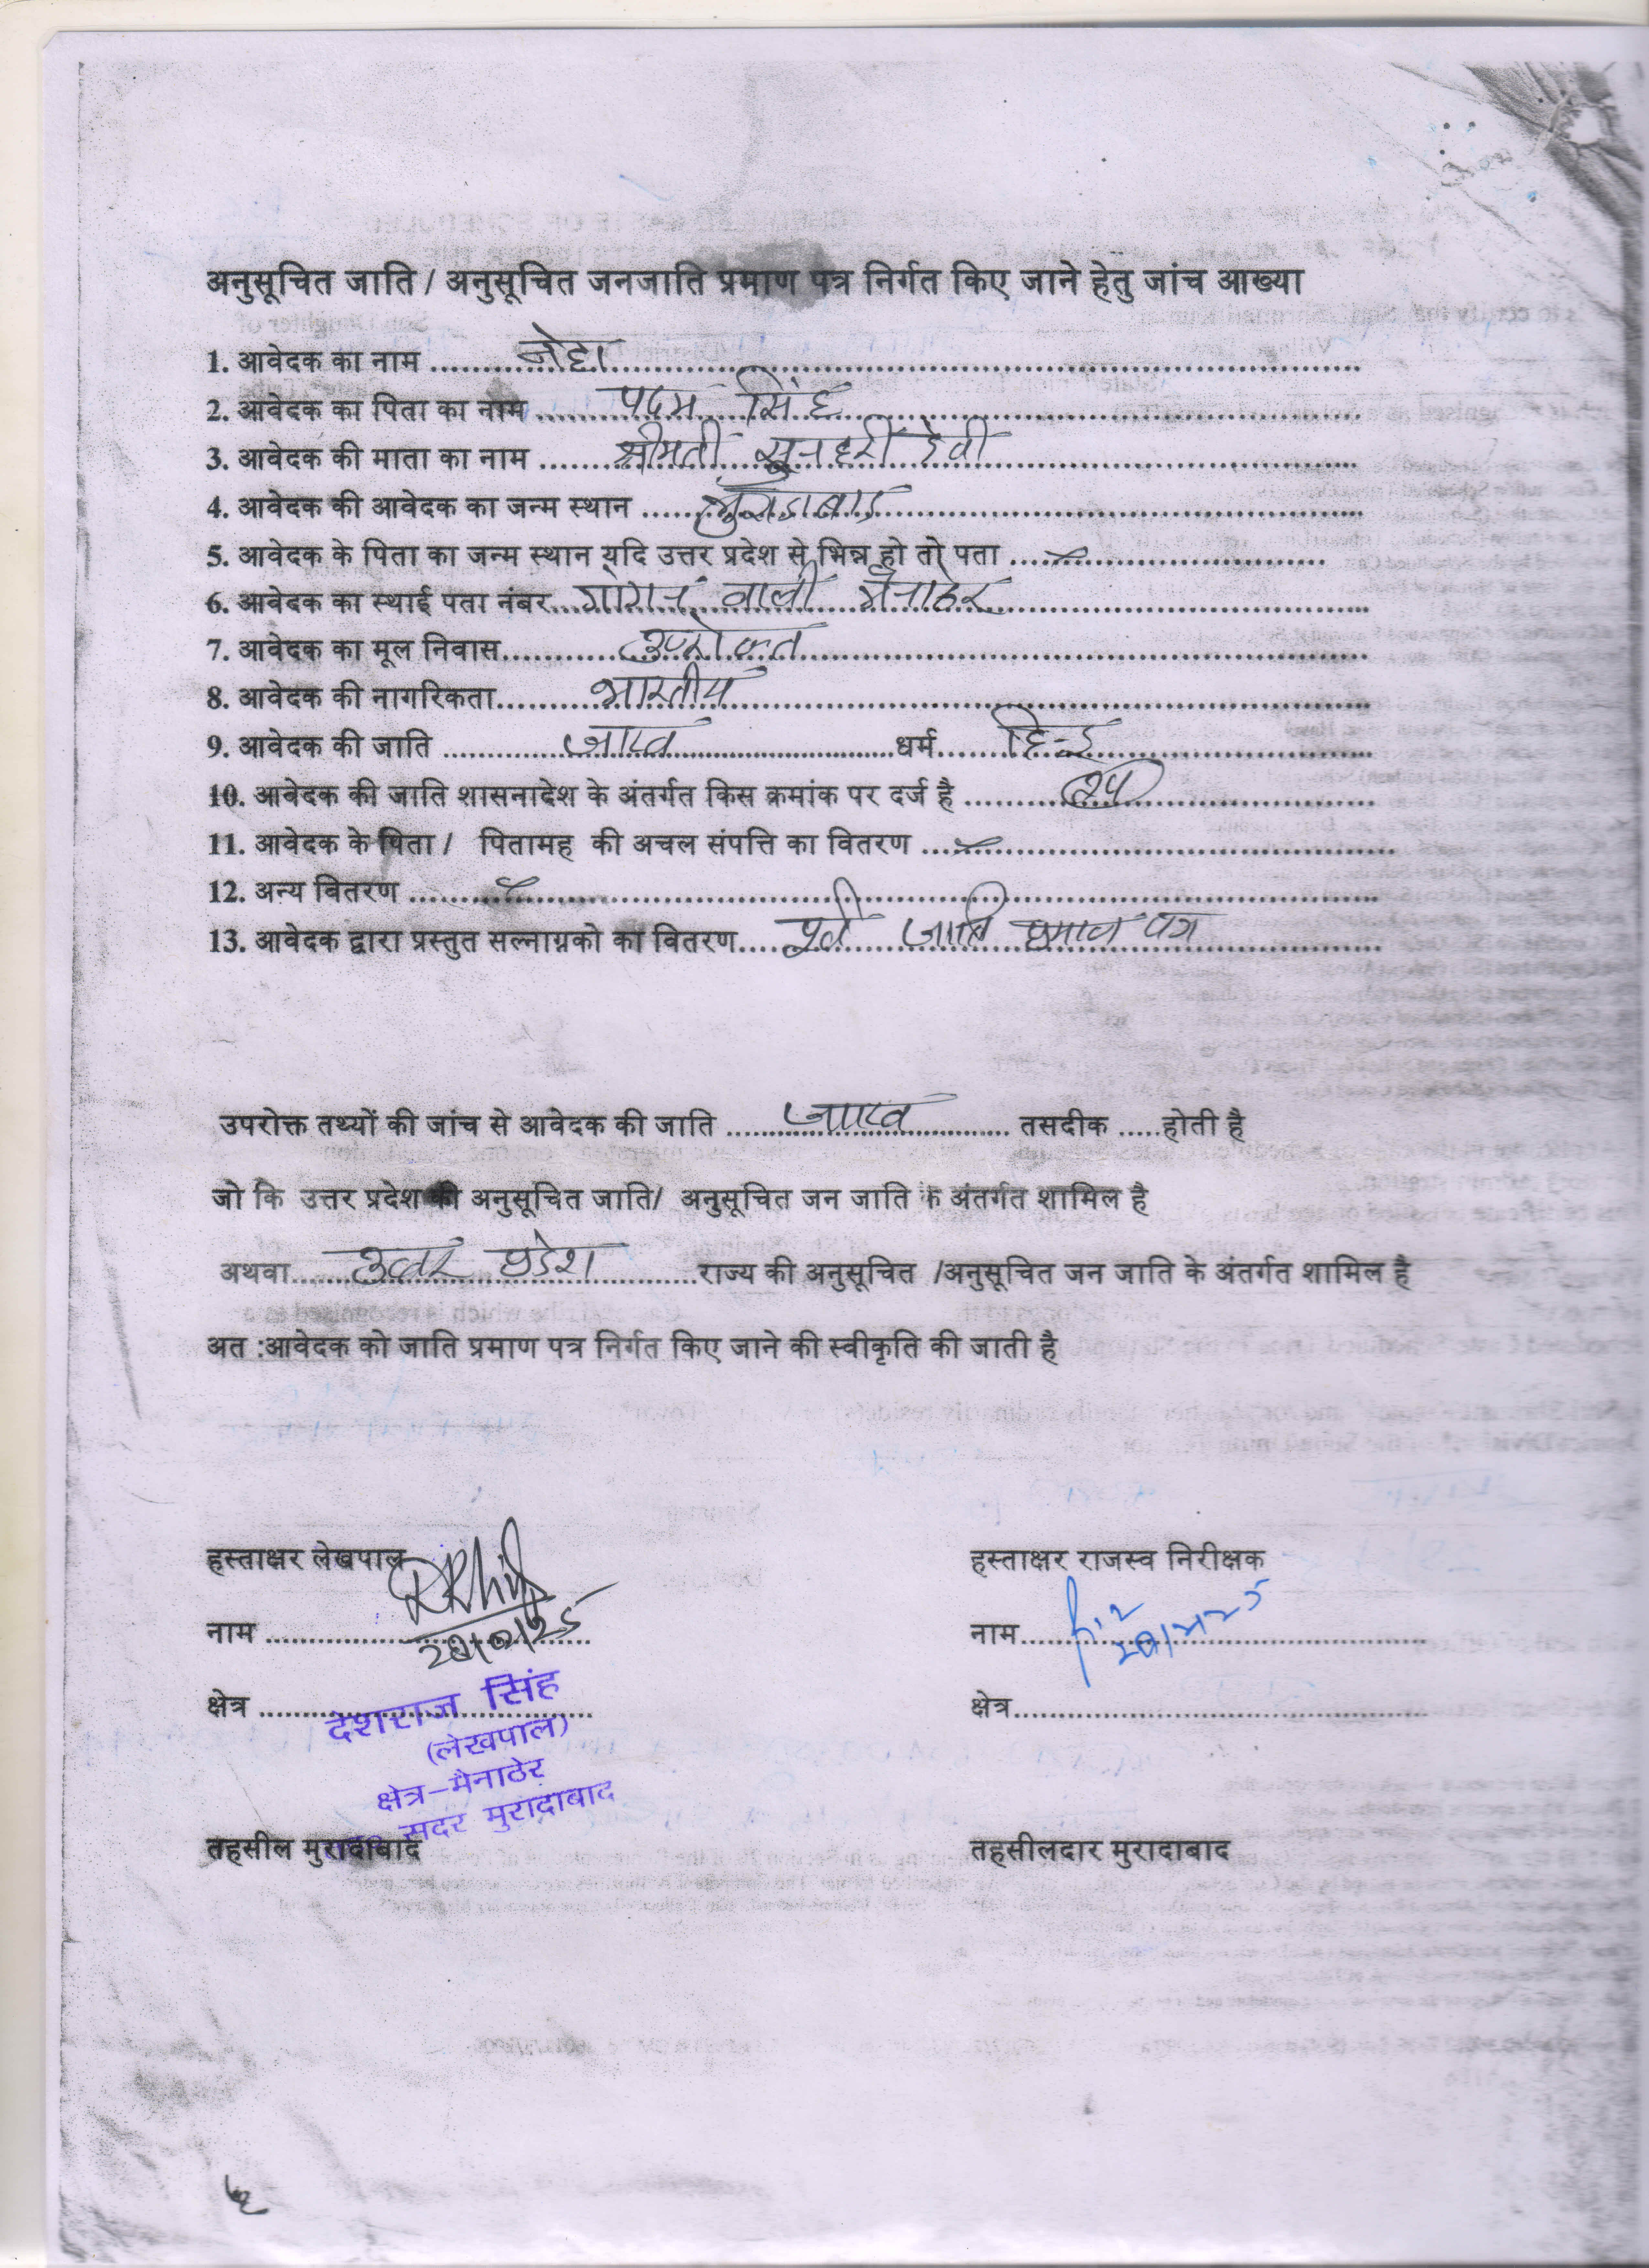 अनुसूचित जाति / अनुसूचित जनजाति प्रमाण पत्र निर्गत किए जाने हेतु जांच आख्या
1. आवेदक का नाम ........ नेहा ........
2. आवेदक का पिता का नाम ........ पदम सिंह ........
3. आवेदक की माता का नाम ........ श्रीमती सुनहरी देवी ........
4. आवेदक की आवेदक का जन्म स्थान ........ मुरादाबाद ........
5. आवेदक के पिता का जन्म स्थान यदि उत्तर प्रदेश से भिन्न हो तो पता ........
6. आवेदक का स्थाई पता नंबर ........ वाली मैनाठेर ........
7. आवेदक का मूल निवास ........ उपरोक्त ........
8. आवेदक की नागरिकता ........ भारतीय ........
9. आवेदक की जाति ........ जाटव ........ धर्म ........ हिन्दू ........
10. आवेदक की जाति शासनादेश के अंतर्गत किस क्रमांक पर दर्ज है ........
11. आवेदक के पिता / पितामह की अचल संपत्ति का वितरण ........
12. अन्य वितरण ........
13. आवेदक द्वारा प्रस्तुत सल्नाग्नको का वितरण ........ पूर्व जाति प्रमाण पत्र ........
उपरोक्त तथ्यों की जांच से आवेदक की जाति ........ जाटव ........ तसदीक .....होती है
जो कि उत्तर प्रदेश की अनुसूचित जाति/ अनुसूचित जन जाति के अंतर्गत शामिल है
अथवा ........ उत्तर प्रदेश ........ राज्य की अनुसूचित /अनुसूचित जन जाति के अंतर्गत शामिल है
अत :आवेदक को जाति प्रमाण पत्र निर्गत किए जाने की स्वीकृति की जाती है
हस्ताक्षर लेखपाल
हस्ताक्षर राजस्व निरीक्षक
नाम ........
नाम ........
क्षेत्र ........
क्षेत्र ........
देशराज सिंह
(लेखपाल)
क्षेत्र–मैनाठेर
सदर मुरादाबाद
तहसील मुरादाबाद
तहसीलदार मुरादाबाद